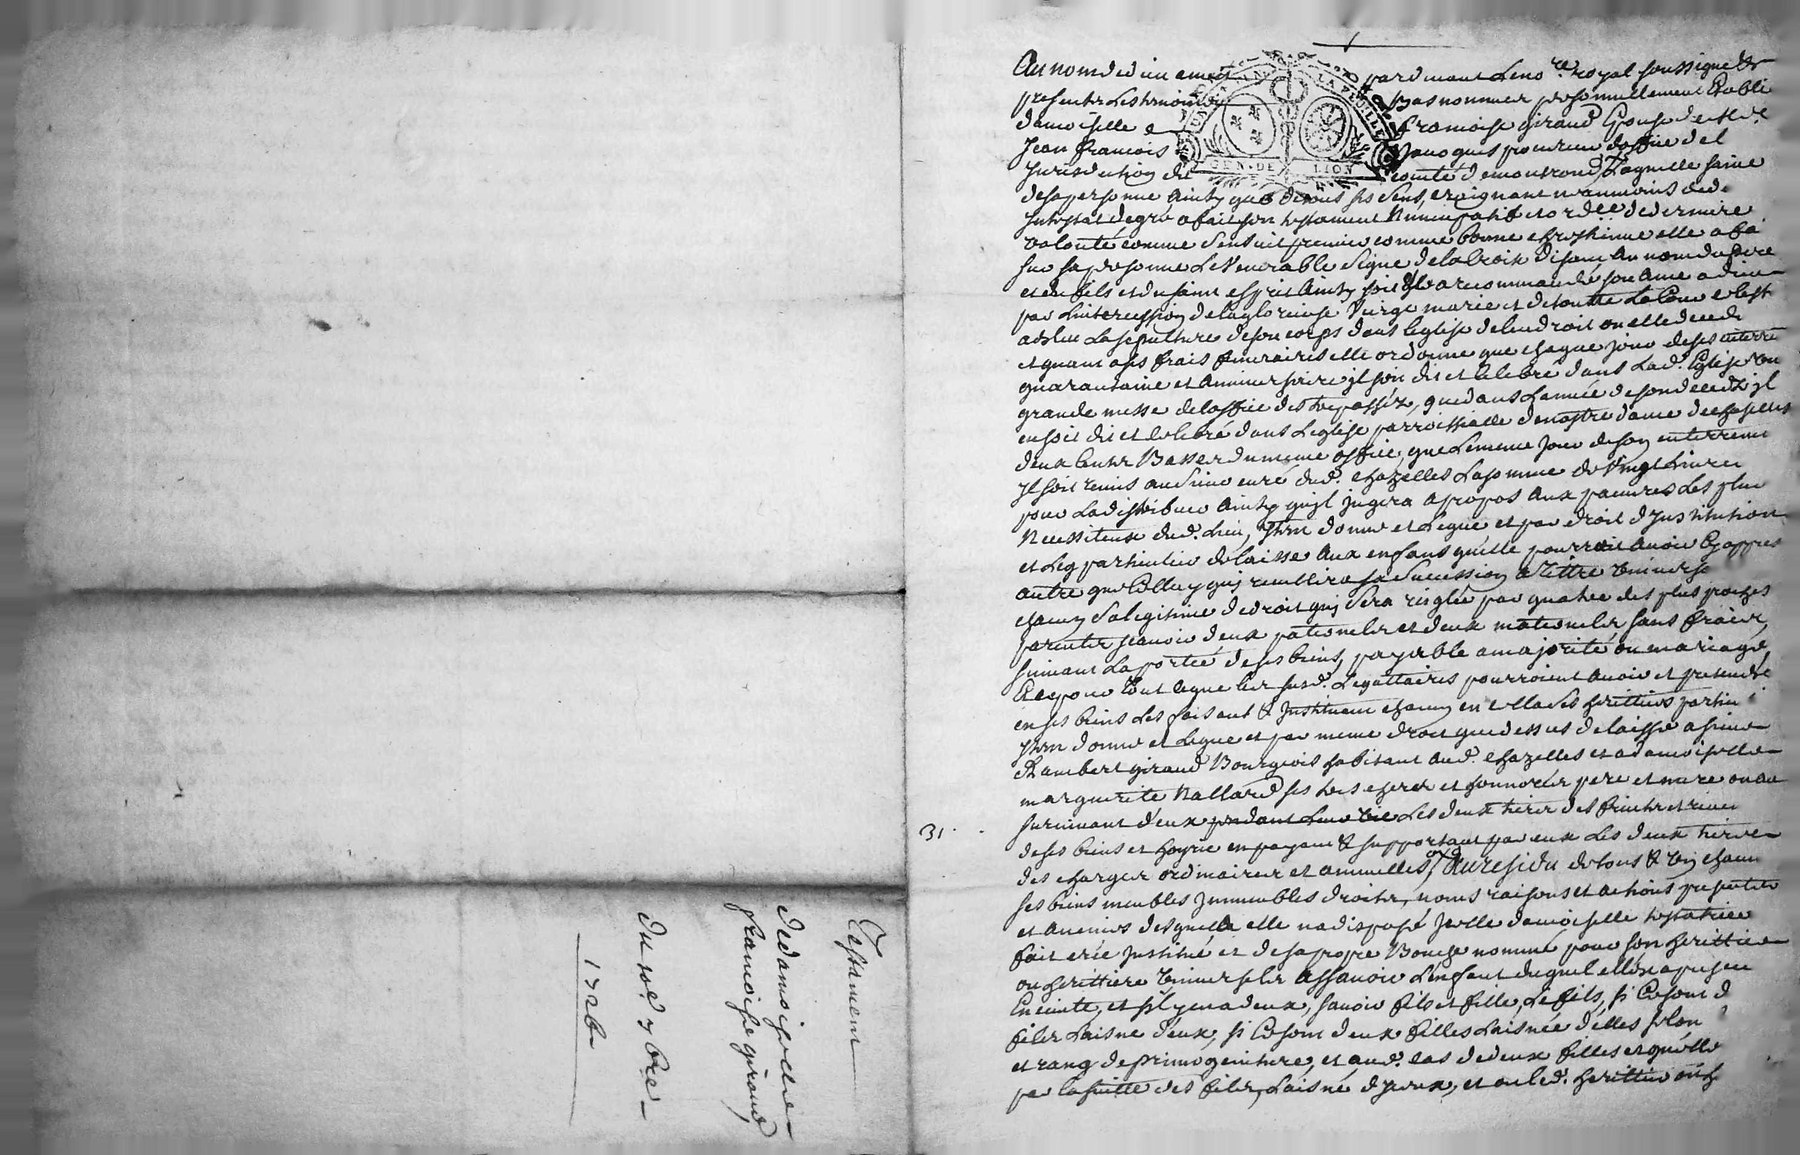 Testament
de damoiselle
francoise giraud
du xe. 7bre
1726
31.
Au nom de dieu amen pardevant le no.re royal soussigné &
presents les temoins bas nommes personnellement Establi
damoiselle francoise giraud Epouse de Me.
Jean francois procureur doffice de l
Jurisdiction de comté de montrond, laquelle saine
GEN DE LION
de sa personne ainsy que de tous ses sens, craignant neanmoins de
Intestat degré a fait son testament Nuncupatif et ordce. de derniere
volonté comme s'ensuit premier comme bonne chrestienne elle a fa
sur sa personne Le Venerable Signe de la Croix disant Au nom du pere
et du fils et du saint esprit Ainsy soit Il a recommandé son Ame a dieu
par L'intercession de la glorieuse Vierge marie et de toutte La Cour celest
a esleu La sepulture de son corps dans l'eglise de l'endroit ou elle deced
et quant a ses frais funeraires elle ordonne que chaque jour de ses enterre
quarantaine et anniversaire jl soit dit et celebré dans lad. Eglise une
grande messe de l'office des trepassez, que dans L'année de son deced jl
en soit dit et celebré dans L'eglise parroissialle de nostre dame de chazelles
deux Cents Basses du meme office, que Le meme jour de son enterrement
Il soit remis au sieur curé dud. chazelles La somme de Vingt Livres
pour La distribuer Ainsy qu'jl jugera a propos Aux pauvres Les plus
Necessiteux dud. Lieu, Item donne et Legue et par droit d'Institution
et Leg particulier delaisse Aux enfans qu'elle pourroit Avoir Cy appres
autre que Celluy qui recuillira sa Succession a tittre universel
chacun Sa legitime de droit qui Sera reglée par quatre des plus proches
parents scavoir deux paternels et deux maternels sans fraix,
suivant La portée de ses biens, payable a majorité ou mariage,
Et ce pour tout ce que Les susd. Legattaires pourroient avoir et pretendre
en ses biens Les faisant & Instituant chacun en cella Ses herittiers particu
Item donne et Legue et par meme droit que dessus delaisse a sieur
Lambert giraud Bourgeois habitant aud. chazelles et a damoiselle
marguerite Nallard ses tres chers et honnorés pere et mere ou au
survivant d'eux pendant Leur vie Les deux tiers des fruits et revenus
de ses biens et hoyrie en payant & supportant par eux Les deux tiers
des charges ordinaires et annuelles, Au residu de tous & un chacun
ses biens meubles Immeubles droits, noms raisons et actions presents
et avenirs desquels elle n'a disposé Icelle damoiselle testatrice
fait crée Institué et de sa propre Bouche nommé pour son herittier
ou herittiere universels Assavoir L'enfant duquel elle
Enceinte, et s'il y en a deux, scavoir fils et fille, Le fils, si Ce sont d
fils L'aisné d'eux, si Ce sont deux filles L'aisnée d'elles selon
et rang de primogeniture, et aud. cas de deux filles et qu'elle
par la suitte des fils, L'aisné d'yceux, et ou led. herittier